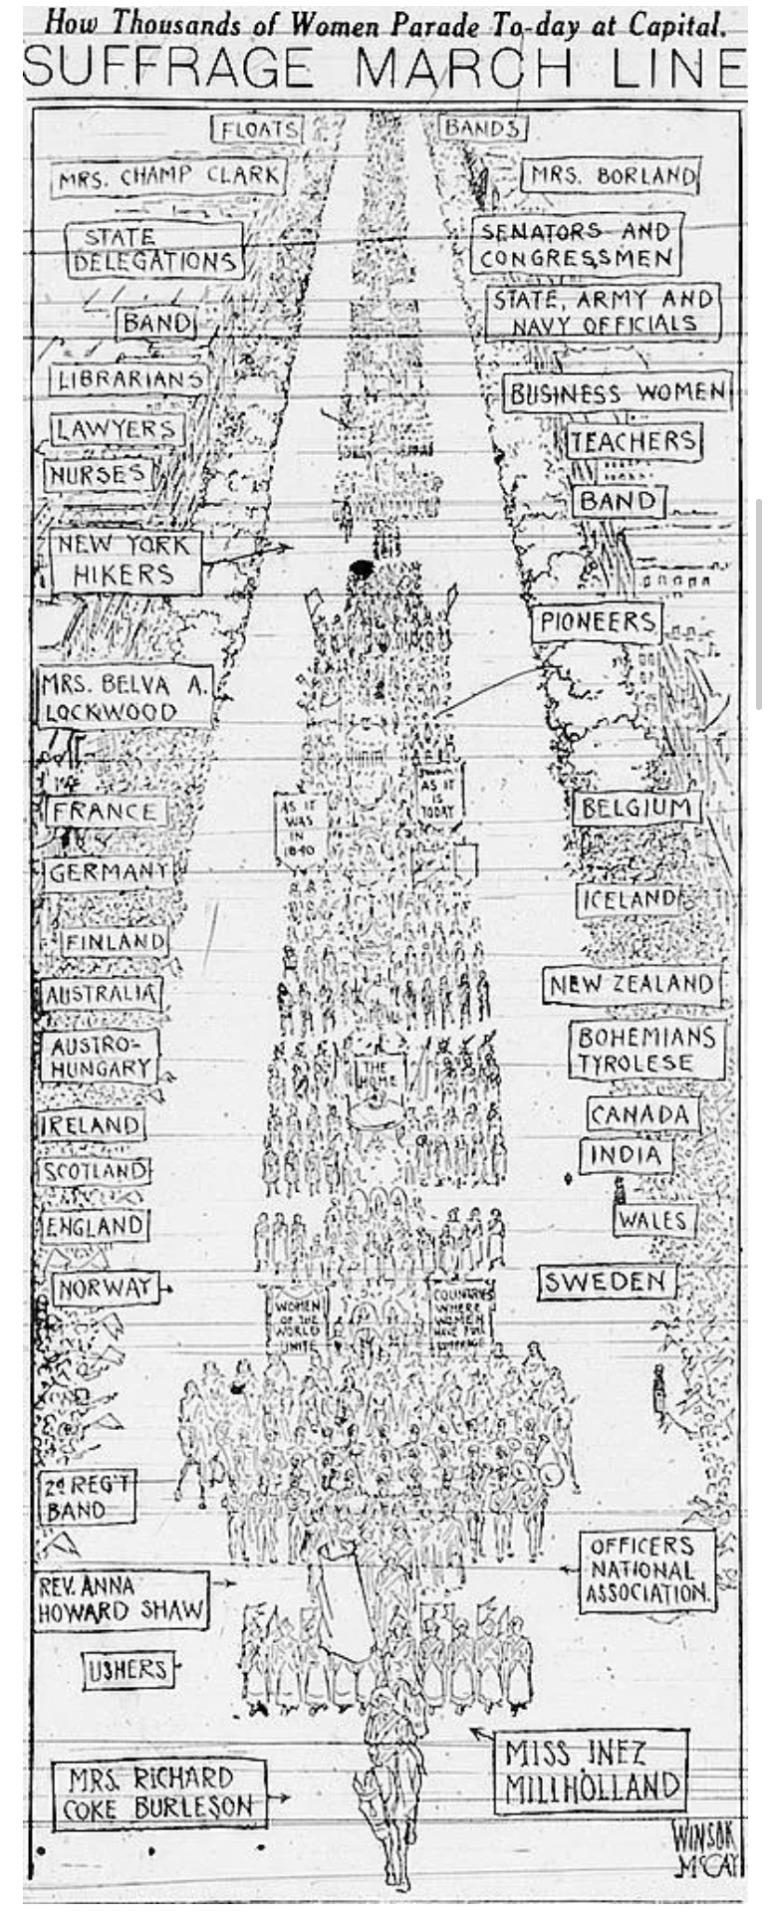 How Thousands of Women Parade To-day at Capital.
SUFFRAGE MARCH LINE
FLOATS
BANDS
MRS. CHAMP CLARK
MRS. BORLAND
STATE
DELEGATIONS
SENATORS AND
CONGRESSMEN
STATE, ARMY AND
NAVY OFFICIALS
BAND
LIBRARIANS
BUSINESS WOMEN
LAWYERS
TEACHERS
NURSES
BAND
NEW YORK
HIKERS
PIONEERS
MRS. BELVA A.
LOCKWOOD
AS IT
IS
TODAY
AS IT
WAS
IN
1840
FRANCE
BELGIUM
GERMANY
ICELAND
FINLAND
AUSTRALIA
NEW ZEALAND
AUSTRO-
HUNGARY
BOHEMIANS
TYROLESE
THE
HOME
IRELAND
CANADA
SCOTLAND
INDIA
ENGLAND
WALES
NORWAY
SWEDEN
WOMEN
OF THE
WORLD
UNITE
COUNTRIES
WHERE
WOMEN
HAVE FULL
2d REG'T
BAND
OFFICERS
NATIONAL
ASSOCIATION.
REV. ANNA
HOWARD SHAW
USHERS
MISS INEZ
MILLHOLLAND
MRS. RICHARD
COKE BURLESON
WINSOR
McCAY